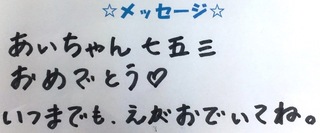 ☆メッセージ☆
あいちゃん 七五三
おめでとう♡
いつまでも、えがおでいてね。